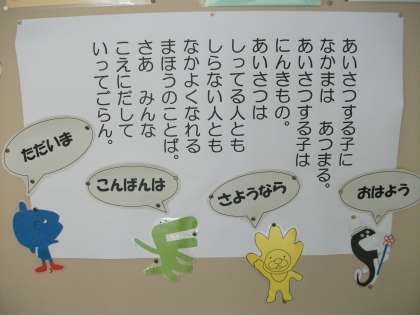 あいさつする子に
なかまは　あつまる。
あいさつする子は
にんきもの。
あいさつは
しってる人とも
しらない人とも
なかよくなれる
まほうのことば。
さあ　みんな
こえにだして
いってごらん。
ただいま
こんばんは
さようなら
おはよう